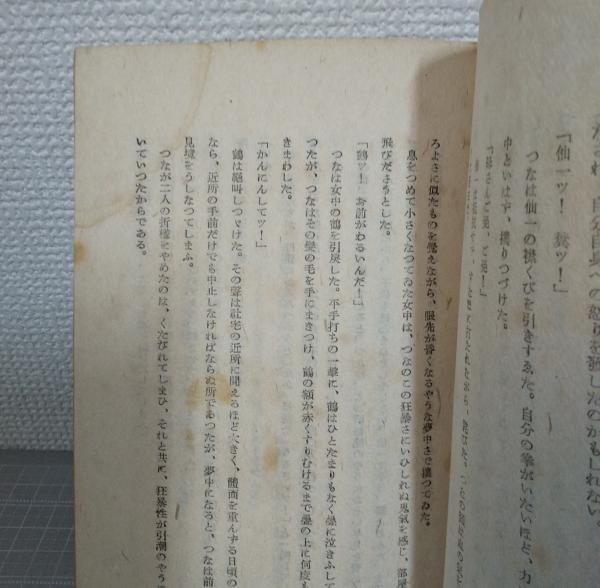 だされ、自分自身への怒りを発したのかもしれない。
「仙一ッ！糞ッ！」
つなは仙一の襟くびを引きすゑた。自分の拳がいたいほど、力
中といはず、撲りつづけた。
「母さんご免、ご免！」
ろよさに似たものを覚えながら、眼先が昏くなるやうな夢中さで撲つてゐた。
息をつめて小さくなつてゐた女中は、つなのこの狂暴さにいひしれぬ鬼氣を感じ、部屋
飛びださうとした。
「鶴ッ！お前がわるいんだ！」
つなは女中の鶴を引戻した。平手打ちの一撃に、鶴はひとたまりもなく疊に泣きふして
つたが、つなはその髮の毛を手にまきつけ、鶴の額が赤くすりむけるまで疊の上に何度も
きまわした。
「かんにんしてッ！」
鶴は絶叫しつづけた。その聲は社宅の近所に聞えるほど大きく、體面を重んずる日頃の
なら、近所の手前だけでも中止しなければならぬ所であつたが、夢中になると、つなは前
見境をうしなつてしまふ。
つなが二人の折檻をやめたのは、くたびれてしまひ、それと共に、狂暴性が引潮のやうに
いていつたからである。